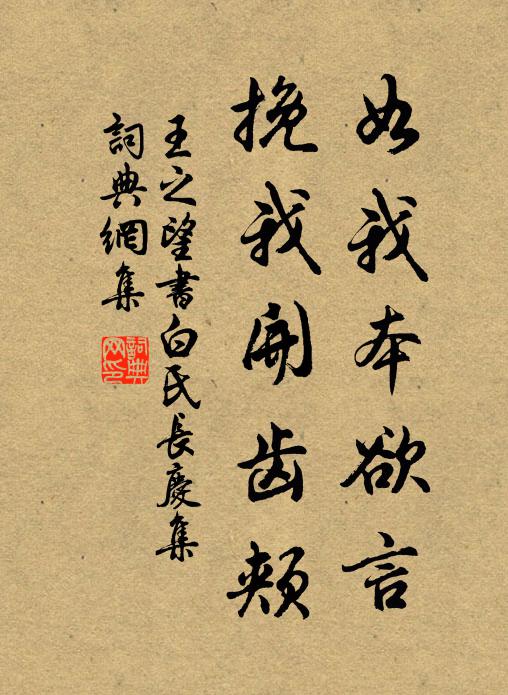 如我本欲言
挽我開齿頰
王之望書白氏長慶集
詞典網集
詞典
网印